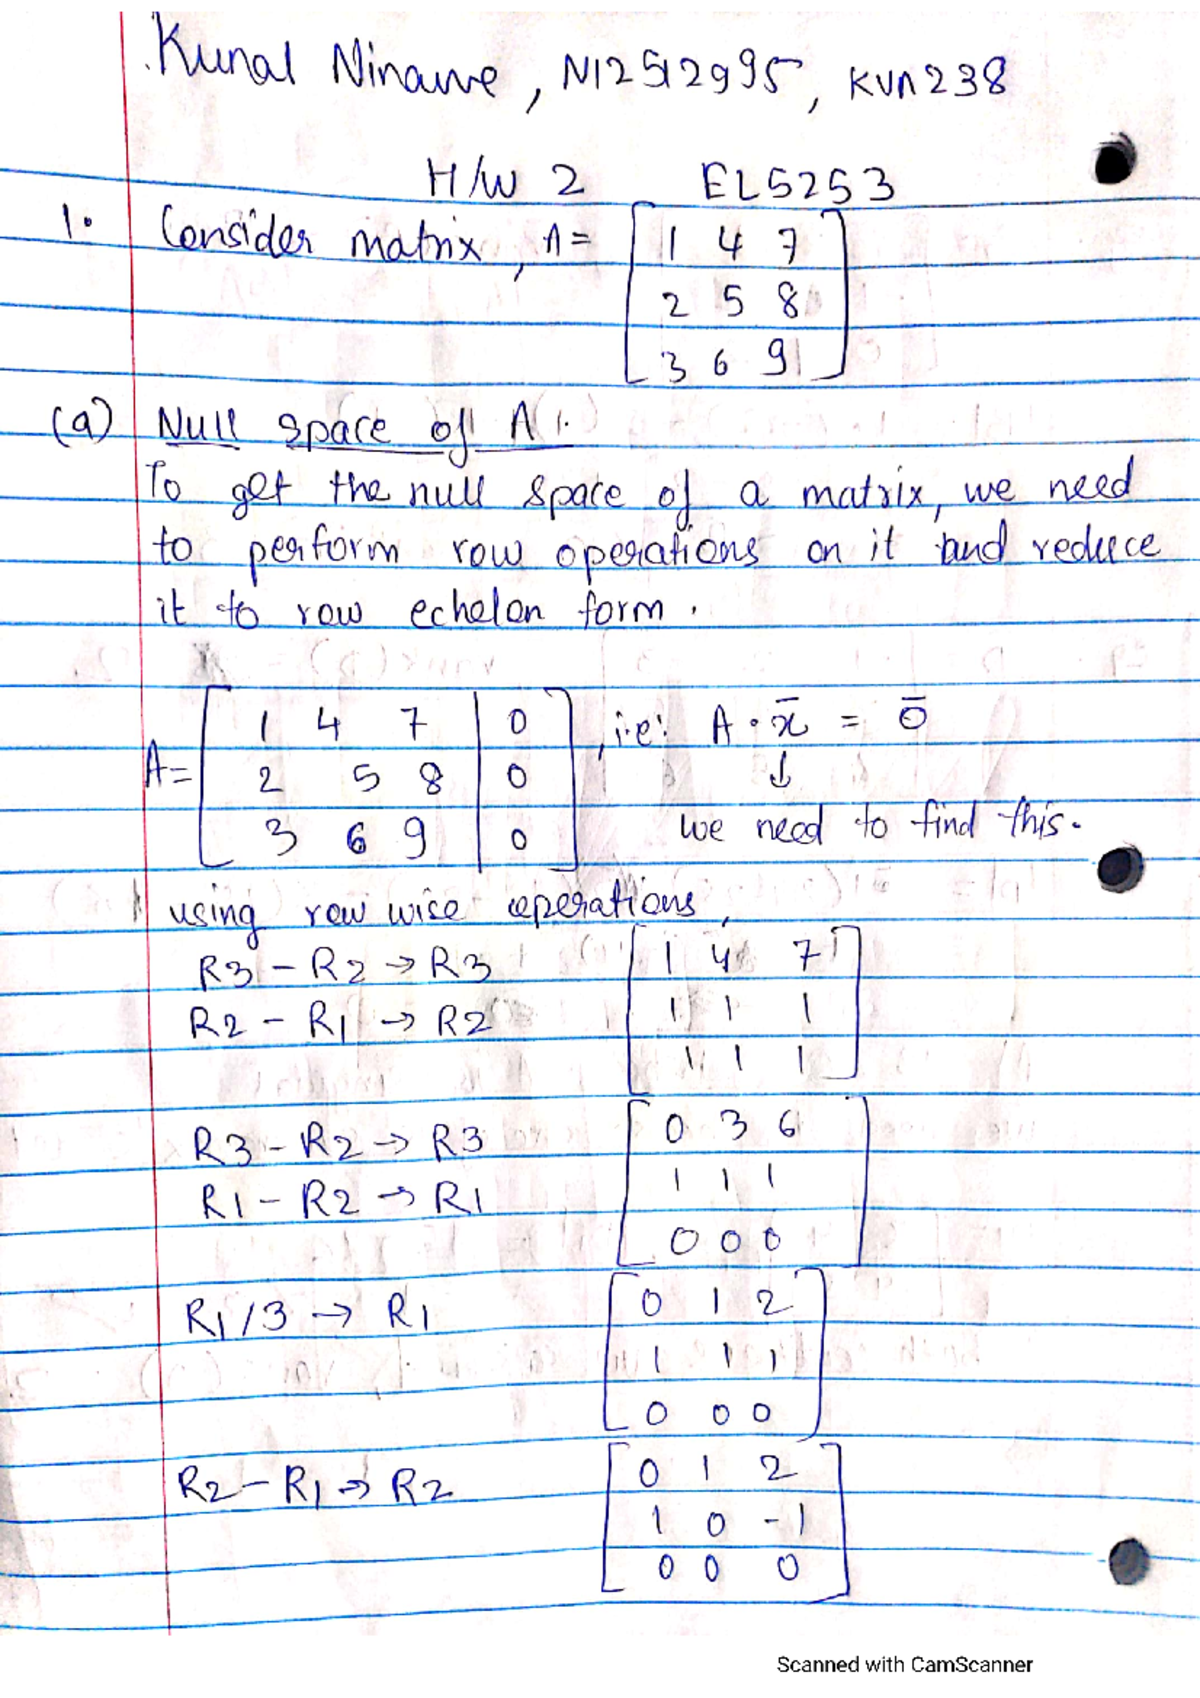 Kunal Ninawe, N12512995, KVN238
H/W 2 EL5253
1. Consider matrix, A = [ 1 4 7
2 5 8
3 6 9 ]
(a) Null space of A:
To get the null space of a matrix, we need
to perform row operations on it and reduce
it to row echelon form.
A = [ 1 4 7 | 0 ] , i.e: A · x̄ = ō
2 5 8 | 0 ↓
3 6 9 | 0 we need to find this.
using row wise operations,
R3 - R2 → R3 [ 1 4 7
R2 - R1 → R2 1 1 1
1 1 1 ]
R3 - R2 → R3 [ 0 3 6
R1 - R2 → R1 1 1 1
0 0 0 ]
R1/3 → R1 [ 0 1 2
1 1 1
0 0 0 ]
R2 - R1 → R2 [ 0 1 2
1 0 -1
0 0 0 ]
Scanned with CamScanner